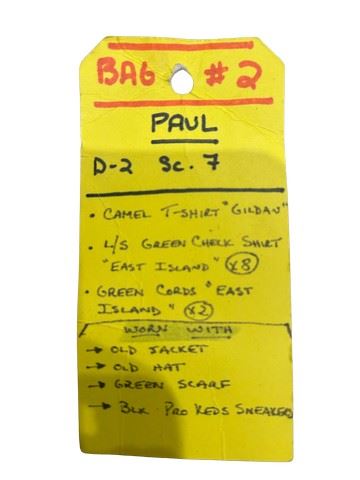 BAG #2
PAUL
D-2 Sc. 7
• CAMEL T-SHIRT "GILDAN"
• L/S GREEN CHECK SHIRT
"EAST ISLAND" x8
• GREEN CORDS "EAST
ISLAND" x2
WORN WITH
→ OLD JACKET
→ OLD HAT
→ GREEN SCARF
→ BLK PRO KEDS SNEAKERS